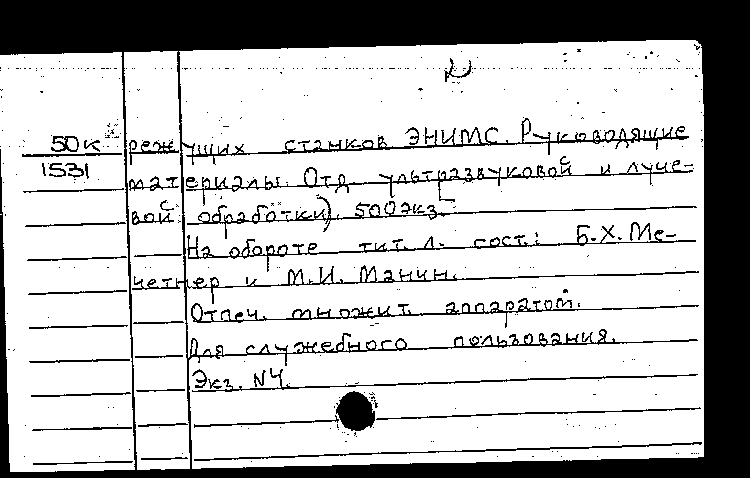 2
50к режущих станков ЭНИМС. Руководящие
1531 материалы. Отд. ультразвуковой и луче-
вой обработки). 500экз.
На обороте тит. л. сост.: Б.Х. Ме-
четнер и М.И. Манин.
Отпеч. множит. аппаратом.
Для служебного пользования.
Экз. N4.